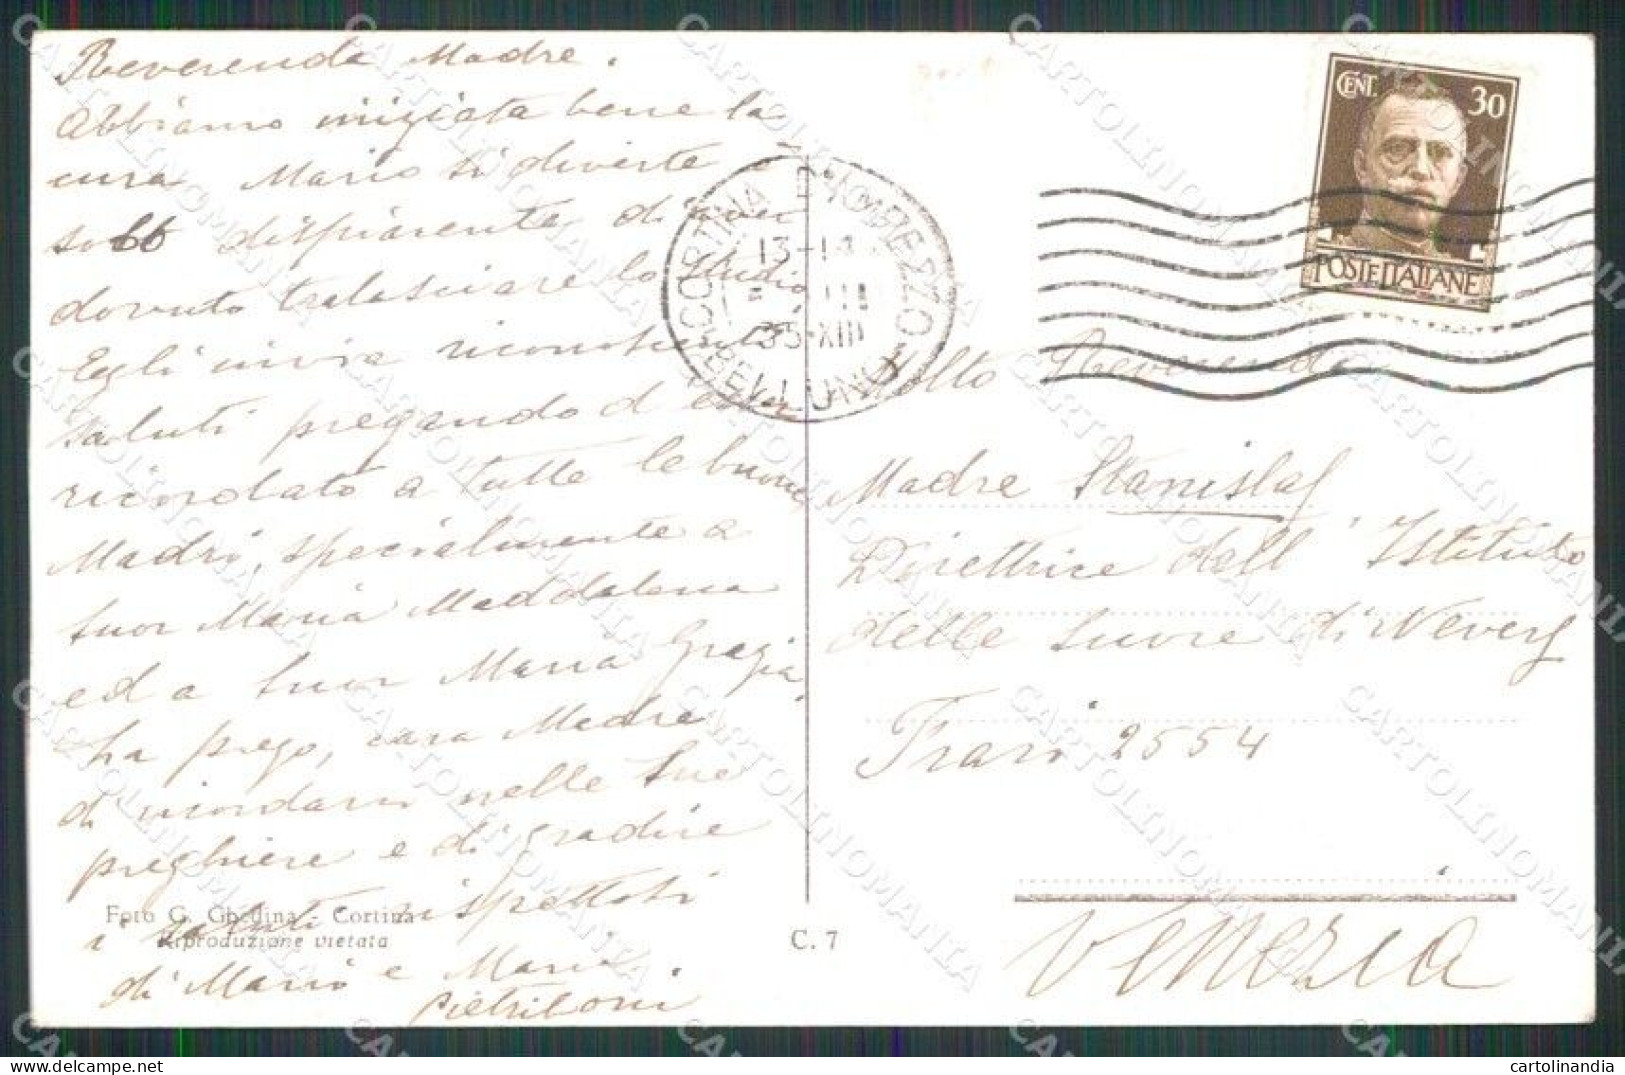 Reverenda Madre.
Abbiamo iniziata bene la
cura. Mario si diverte e
sebb dispiacente di aver
dovuto tralasciare lo studio
Egli invia riconoscenti
saluti pregando d'esser
ricordato a tutte le buone
Madri, specialmente a
Suor Maria Maddalena
ed a Suor Maria Grazia.
La prego, cara Madre
di ricordarci nelle Sue
preghiere e di gradire
i saluti rispettosi
di Mario e Maria
Pietriboni
Foto G. Ghedina - Cortina
Riproduzione vietata
C. 7
CORTINA D'AMPEZZO
13-14
35-XIII
(BELLUNO)
CENT. 30
POSTE ITALIANE
Alto Reverenda
Madre Stanislas
Direttrice dell'Istituto
delle Suore di Nevers
Frari 2554
Venezia
CARTOLINOMANIA
cartolinandia